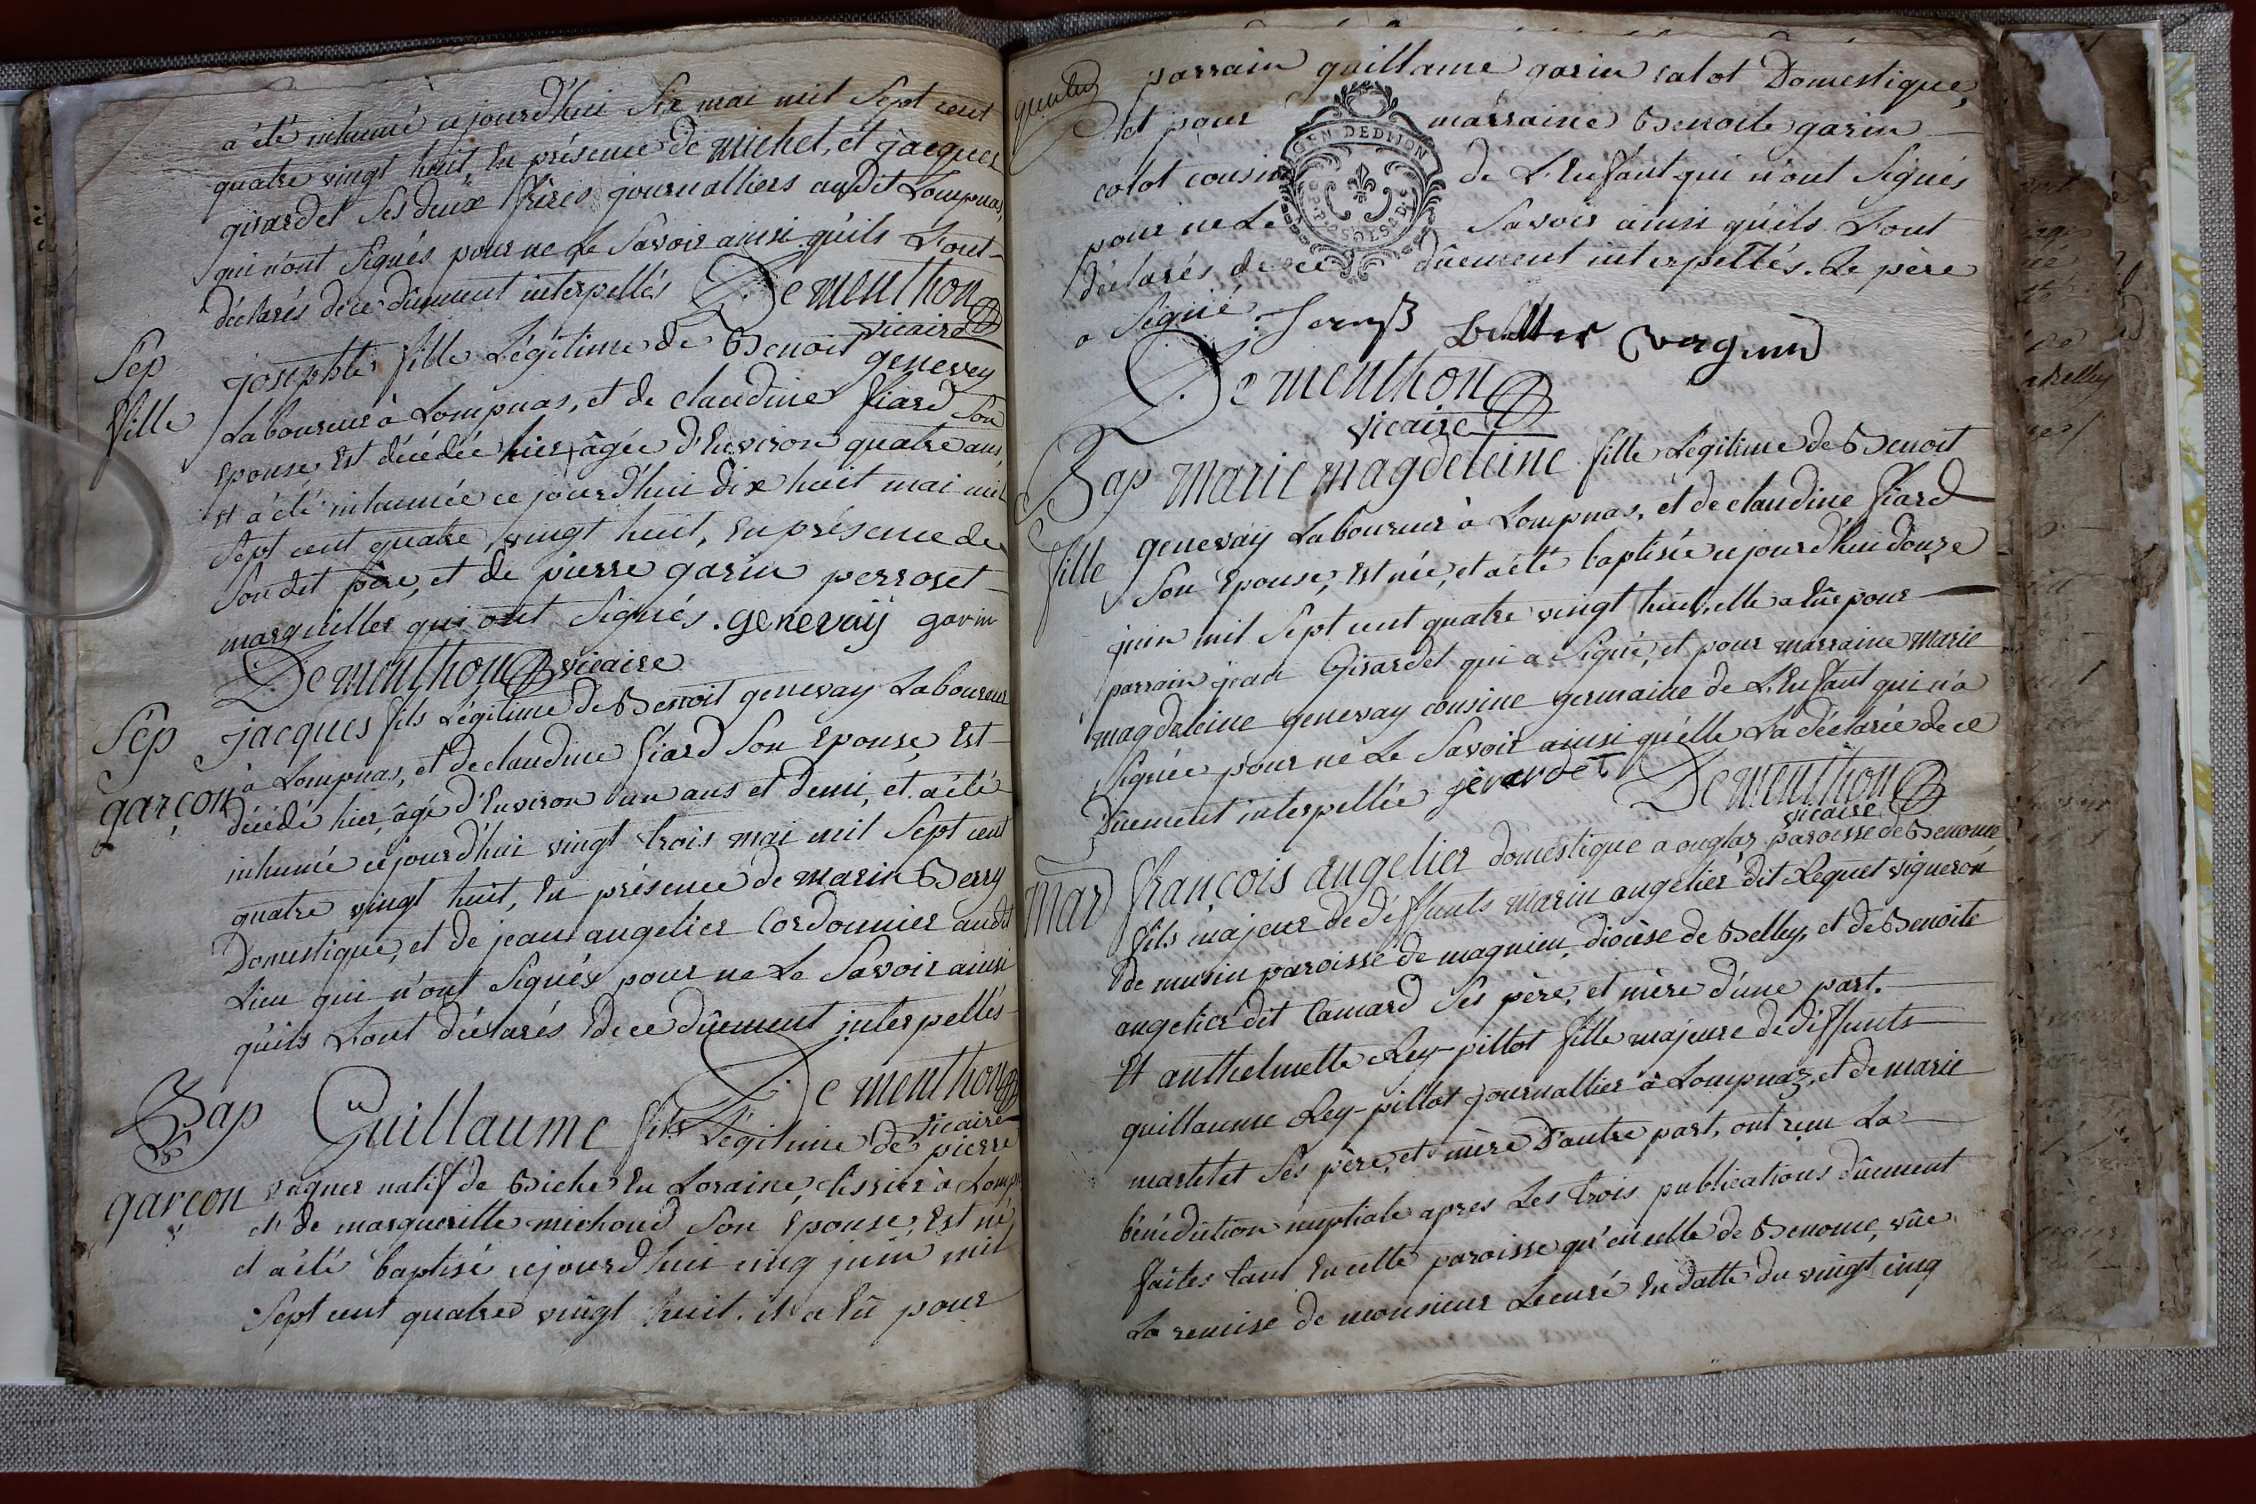 a été inhumé cejourd'hui Six mai mil Sept cent
quatre vingt huit, En présence de michel, et jacques
girardet Ses deux frères journalliers audit Lompnas,
qui n'ont Signés pour ne Le Savoir ainsi qu'ils L'ont
déclarés de ce dûement interpellés Dementhon
vicaire
Sep
fille
josephte fille Légitime de Benoit genevey
Laboureur à Lompnas, et de claudine fiard Son
Epouse, Est décédée hier, âgée d'Environ quatre ans,
et a été inhumée ce jourd'hui dix huit mai mil
Sept cent quatre vingt huit, En présence de
Son dit père, et de pierre garin perroset
marguillier qui ont Signés. genevaÿ garin
Dementhon vicaire
Sép
garçon
jacques fils Légitime de Benoit genevay Laboureur
à Lompnas, et de claudine fiard Son Epouse, Est
décédé hier, âgé d'Environ un ans et demi, et a été
inhumé cejourd'hui vingt trois mai mil Sept cent
quatre vingt huit, En présence de marin Berry
Domestique, et de jean angelier Cordonnier audit
Lieu qui n'ont Signés pour ne Le Savoir ainsi
qu'ils L'ont déclarés de ce dûement interpellés
Dementhon
vicaire
Bap
garçon
Guillaume fils Légitime de pierre
vagner natif de Biche En Loraine, tissier à
et de margueritte michoud Son Epouse, Est né,
et a été baptisé cejourd'hui cinq juin mil
Sept cent quatre vingt huit. il a Eû pour
parrain guillame garin calot Domestique,
et pour marraine Benoite garin
calot cousine de L'Enfant qui n'ont Signés
pour ne Le Savoir ainsi qu'ils L'ont
déclarés de ce dûement interpellés. Le père
a Signé.
GEN DE DIJON
Dementhon
vicaire
Bap
fille
marie magdeleine fille Légitime de Benoit
genevay Laboureur à Lompnas, et de claudine fiard
Son Epouse, Est née, et a été baptisée cejourd'hui douze
juin mil Sept cent quatre vingt huit, elle a Eû pour
parrain jean Girardet qui a Signé, et pour marraine marie
magdeleine genevay cousine germaine de L'Enfant qui n'a
Signée pour ne Le Savoir ainsi qu'elle L'a déclarée de ce
Dûement interpellée gérardet Dementhon
vicaire
Mar
françois angelier domestique a anglas paroisse de Benonce
fils majeur de déffunts marin angelier dit Lequet vigneron
de musin paroisse de magnieu, diocèse de Belley, et de Benoite
angelier dit Camard Ses père, et mère d'une part.
Et anthelmette Rey-pillot fille majeure de déffunts
guillaume Rey-pillot journallier à Lompnaz, et de marie
martelet Ses père, et mère D'autre part, ont reçu La
bénédiction nuptiale apres Les trois publications dûement
faites tant En cette paroisse qu'en celle de Benonce, vûe
La remise de monsieur Lecuré En datte du vingt cinq